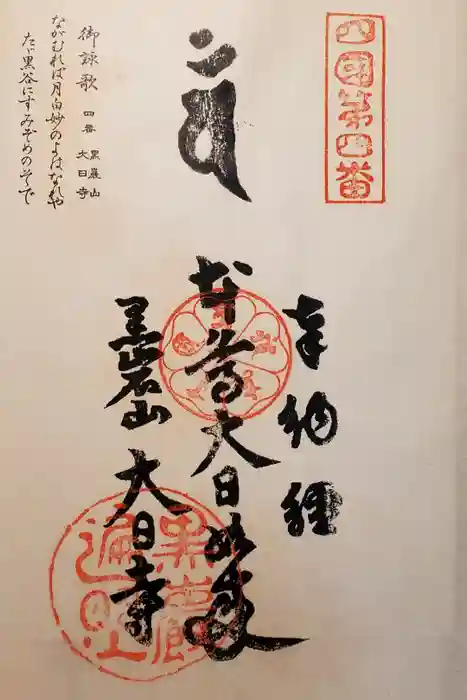 四国第四番
奉納経
本尊大日如来
黒岩山
大日寺
御詠歌 四番 黒巌山 大日寺
ながむれば月白妙のよはなれや
たゞ黒谷にすみぞめのそで